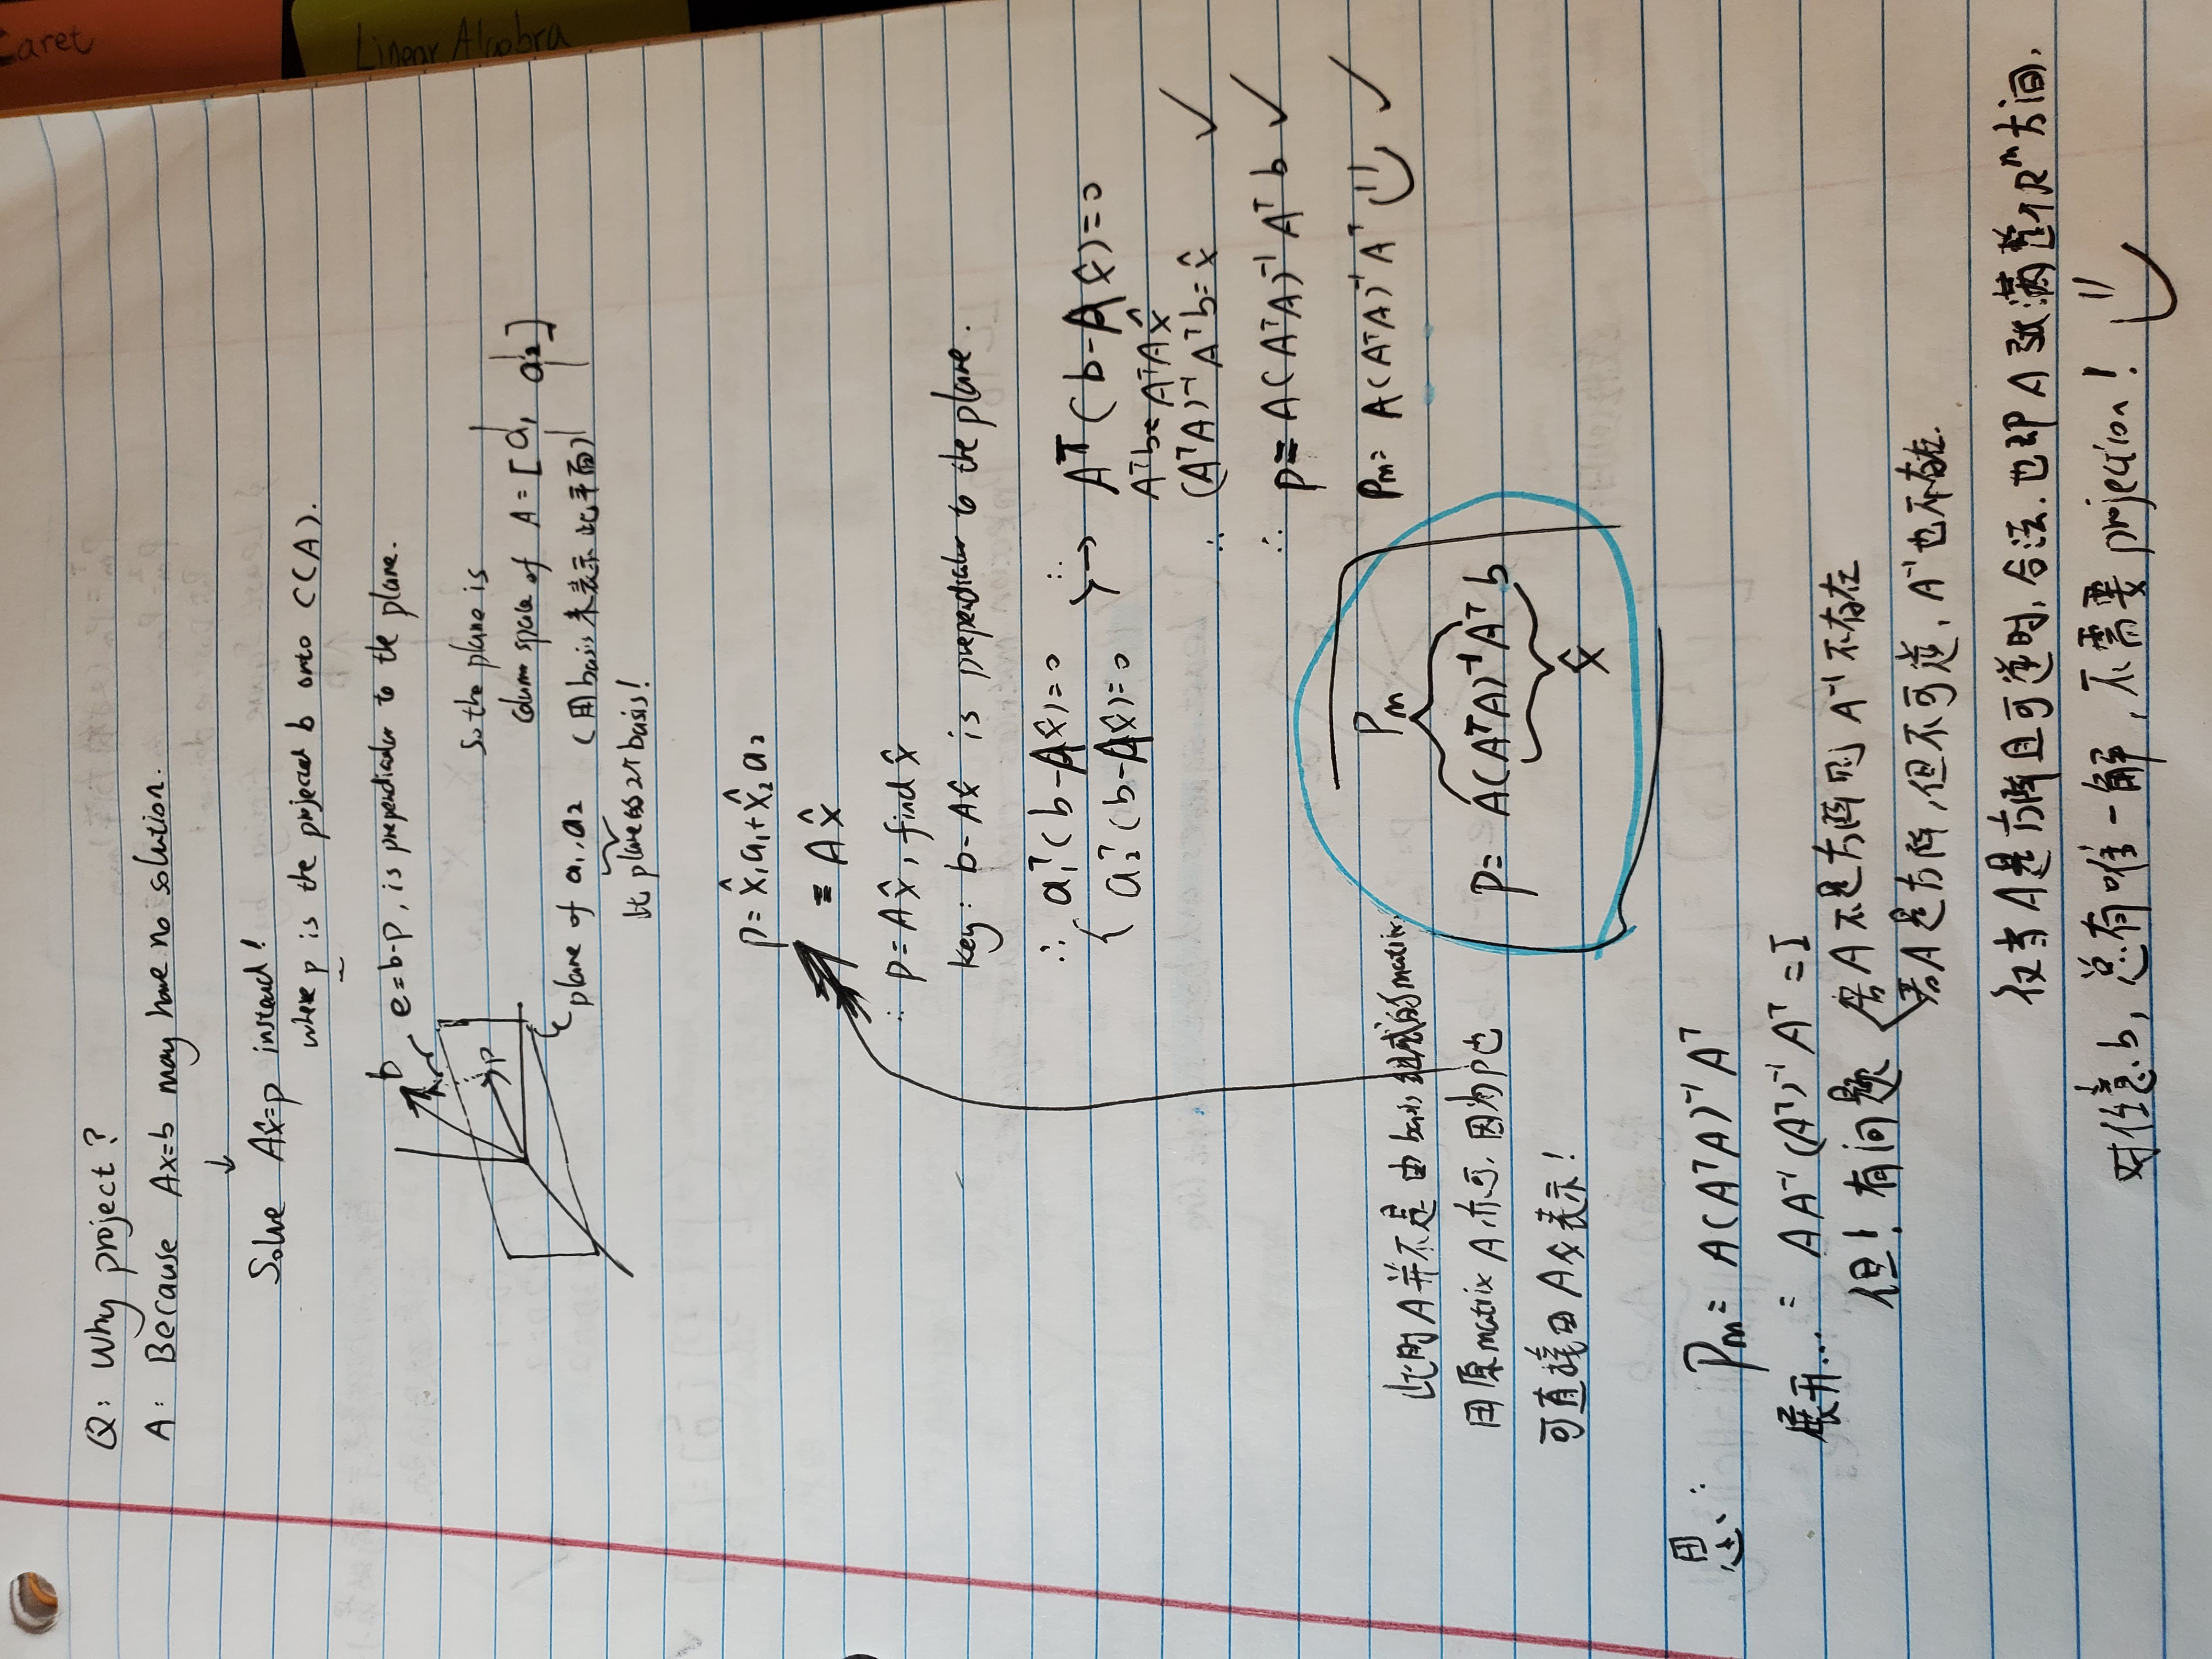 Q: Why project?
A: Because Ax=b may have no solution.
↓
Solve Ax̂=p instead!
where p is the projected b onto C(A).
b
e=b-p, is prependicular to the plane.
p
So the plane is
column space of A=[a₁ a₂]
plane of a₁,a₂
(用basis来表示此平面)
此plane的2个basis!
p=x̂₁a₁+x̂₂a₂
=Ax̂
∴ p=Ax̂, find x̂
key: b-Ax̂ is prependicular to the plane.
∴ a₁ᵀ(b-Ax̂)=0
a₂ᵀ(b-Ax̂)=0
∴ → Aᵀ(b-Ax̂)=0
Aᵀb=AᵀAx̂
∴ (AᵀA)⁻¹Aᵀb=x̂ ✓
∴ p=A(AᵀA)⁻¹Aᵀb ✓
Pm=A(AᵀA)⁻¹Aᵀ ✓
此时A并不是由basis组成的matrix,
用原matrix A亦可,因为p也
可直接由Ax̂表示!
Pm
p=A(AᵀA)⁻¹Aᵀb
x̂
思: Pm=A(AᵀA)⁻¹Aᵀ
展开...=AA⁻¹(Aᵀ)⁻¹Aᵀ=I
但!有问题
若A不是方阵则A⁻¹不存在
若A是方阵,但不可逆,A⁻¹也不存在.
仅当A是方阵且可逆时,合法.也即A张满整个Rᵐ方间,
对任意b,总有唯一解,不需要projection!
Caret
Linear Algebra